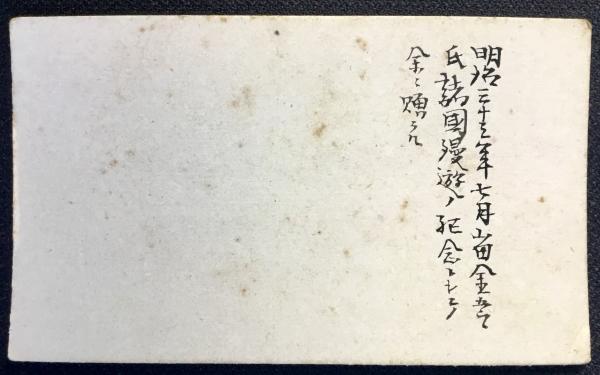 明治三十三年七月山田金吾
氏諸國漫遊ノ紀念トシテ
余ニ贈ラル